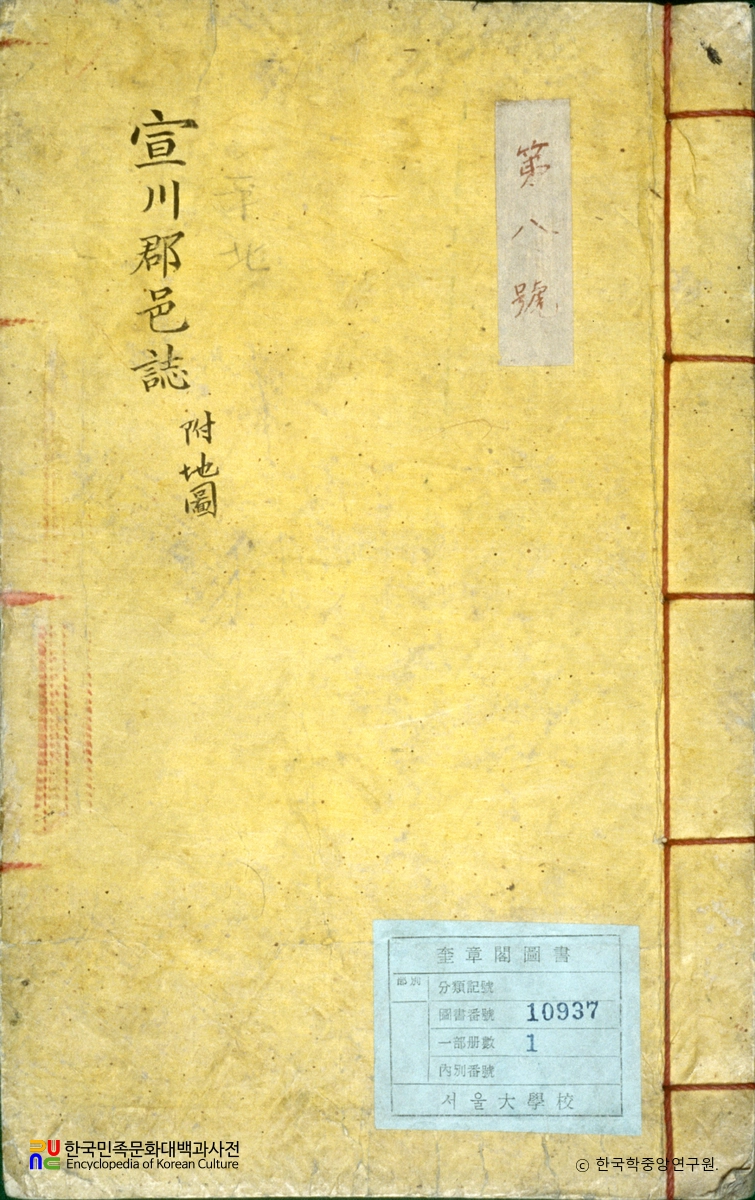 第八號
宣川郡邑誌
附地圖
奎章閣圖書
部別
分類記號
圖書番號 10937
一部册數 1
內別番號
서울大學校
한국민족문화대백과사전
Encyclopedia of Korean Culture
ⓒ 한국학중앙연구원.